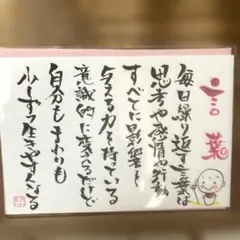 言葉
毎日繰り返す言葉は
思考や感情や行動
すべてに影響を
与える力を持っている
意識的に変えるだけで
自分もまわりも
少しずつ生きやすくなる